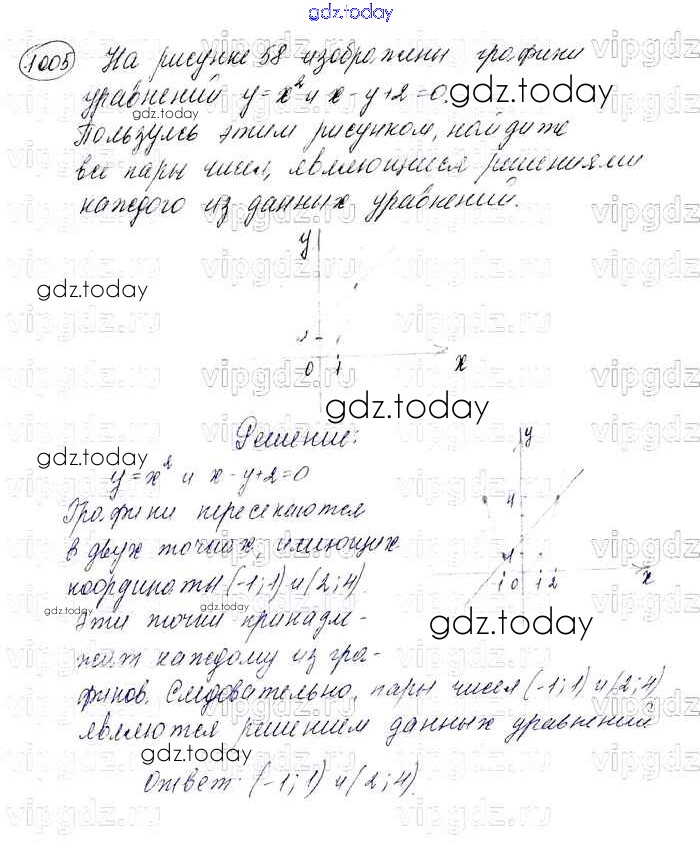 gdz.today
1005 На рисунке 58 изображены графики
уравнений y=x² и x-y+2=0.
Пользуясь этим рисунком, найдите
все пары чисел, являющиеся решениями
каждого из данных уравнений.
y
gdz.today
0 1 x
gdz.today
Решение:
y
gdz.today
y=x² и x-y+2=0
Графики пересекаются
4
в двух точках, имеющих
1
координаты (-1;1) и (2;4).
-1 0 1 2 x
gdz.today
gdz.today
Эти точки принадле-
gdz.today
жат каждому из гра-
фиков. Следовательно, пары чисел (-1;1) и (2;4)
являются решением данных уравнений
gdz.today
Ответ: (-1;1) и (2;4).
vipgdz.ru